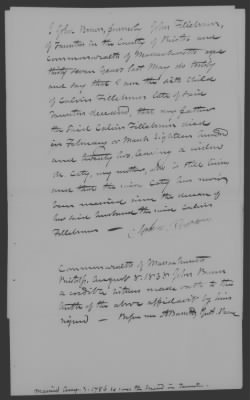 I John Brown, formerly John Fillebrown,
of Taunton in the County of Bristol and
Commonwealth of Massachusetts aged
thirty seven years last May do testify
and say that I am the sixth child
of Calvin Fillebrown late of said
Taunton deceased, that my father
the said Calvin Fillebrown died
in February or March Eighteen hundred
and twenty two, leaving a widow
my mother, who is still living
and that the said has never
been married since the decease of
her said husband the said Calvin
Fillebrown —
John Brown
Commonwealth of Massachusetts
Bristol, ss. August 8. 1838 John Brown
a credible witness made oath to the
truth of the above affidavit by him
signed — Before me
Married Aug. 3. 1786